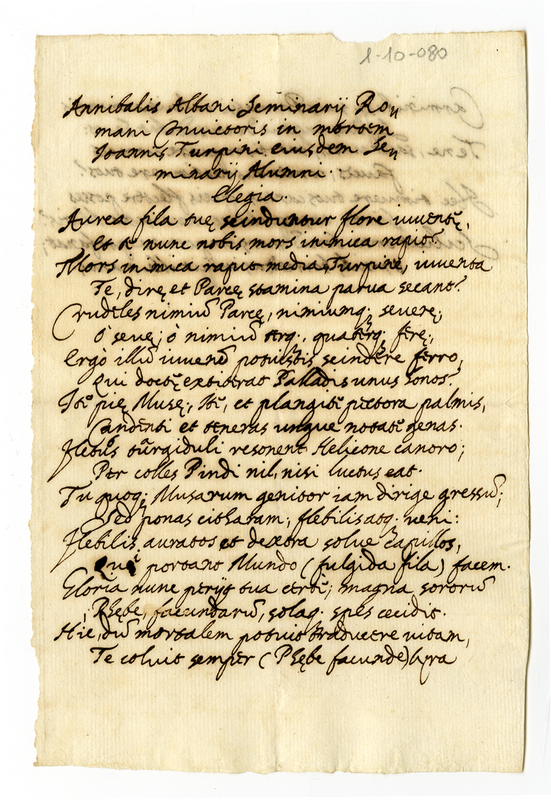 1-10-080
Annibalis Albani Seminarij Ro„
mani Convictoris in mortem
Joannis Turpini eiusdem Se„
minarij Alumni.
Elegia.
Aurea fila tuę scinduntur flore iuventę,
Et tē nunc nobis mors inimica rapit?
Mors inimica rapit media, Turpine, iuventa
Te, dirę et Parcę stamina parva secant?
Crudeles nimiū Parcę, nimiumq; severę;
O sevę; ò nimiū terq; quaterq; ferę;
Ergò illū iuvenē potuistis scindere ferro,
Qui doctę extiterat Palladis unus honos?
Itē pię Musę; Itē, et plangitē pectora palmis,
Candenti et teneras ungue notatē genas.
Flētus turgiduli resonent Helicone canoro;
Per colles Pindi nil, nisi luctus eat.
Tu quoq; Musarum genitor iam dirige gressū;
Sed ponas citharam; flebilis atq; veni:
Flebilis auratos et dextra solve capillos,
Qui portant Mundo (fulgida fila) facem.
Gloria nunc perijt tua certē; magna sororū
Phębe, facundarū, solaq; spes cecidit.
Hic, dū mortalem potuit traducere vitam,
Te coluit semper (Phębe facunde) lyra